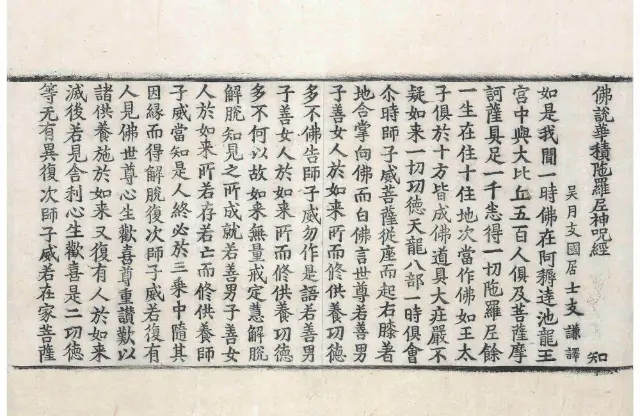 佛說華積陁羅尼神呪經 知
吳月支國居士支謙譯
如是我聞一時佛在阿耨達池龍王
宮中與大比丘五百人俱及菩薩摩
訶薩具足一千悉得一切陁羅尼餘
一生在住十住地次當作佛如王太
子俱於十方皆成佛道具大莊嚴不
疑如来一切功德天龍八部一時俱會
尒時師子威菩薩從座而起右膝著
地合掌向佛而白佛言世尊若善男
子善女人於如来所而修供養功德
多不佛告師子威勿作是語若善男
子善女人於如来所而修供養功德
多不何以故如来無量戒定慧解脫
解脫知見之所成就若善男子善女
人於如来所若存若亡而修供養師
子威當知是人終必於三乘中隨其
因緣而得解脫復次師子威若復有
人見佛世尊心生歡喜尊重讚歎以
諸供養施於如来又復有人於如来
滅後若見舍利心生歡喜是二功德
等无有異復次師子威若在家菩薩